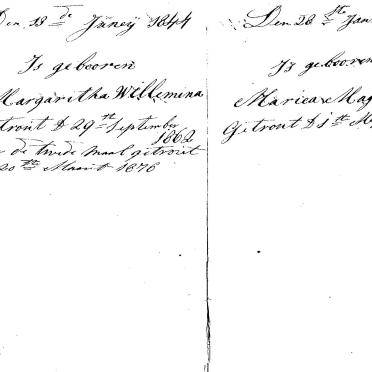 Den 18 de Janeij 1844
Is gebooren
Margaritha Willemina
trout D 29 ste September
1862
de twede maal getrout
20 ste Maart 1876
Den 28 ste Jan
Is gebooren
Mariea Mag
Getrout D 1 ste M